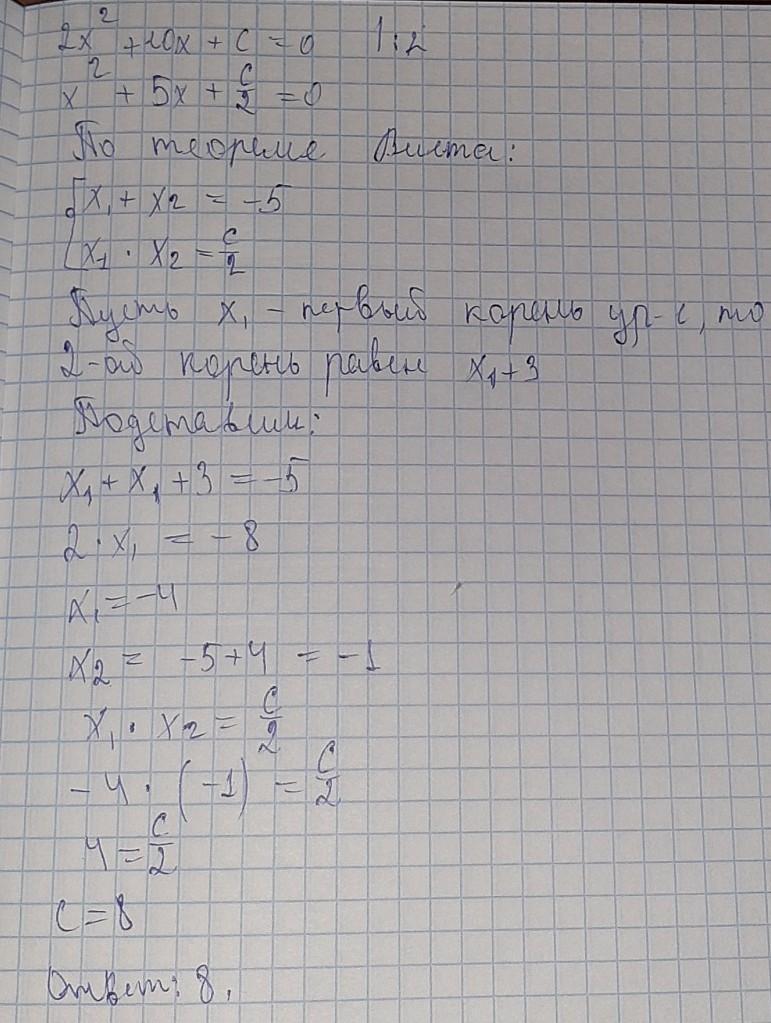 2x² + 10x + c = 0 | : 2
x² + 5x + c/2 = 0
По теореме Виета:
{ x₁ + x₂ = -5
x₁ · x₂ = c/2
Пусть x₁ - первый корень ур-е, то
2-ой корень равен x₁+3
Подставим:
x₁ + x₁ + 3 = -5
2 · x₁ = -8
x₁ = -4
x₂ = -5+4 = -1
x₁ · x₂ = c/2
-4 · (-1) = c/2
4 = c/2
c = 8
Ответ: 8.